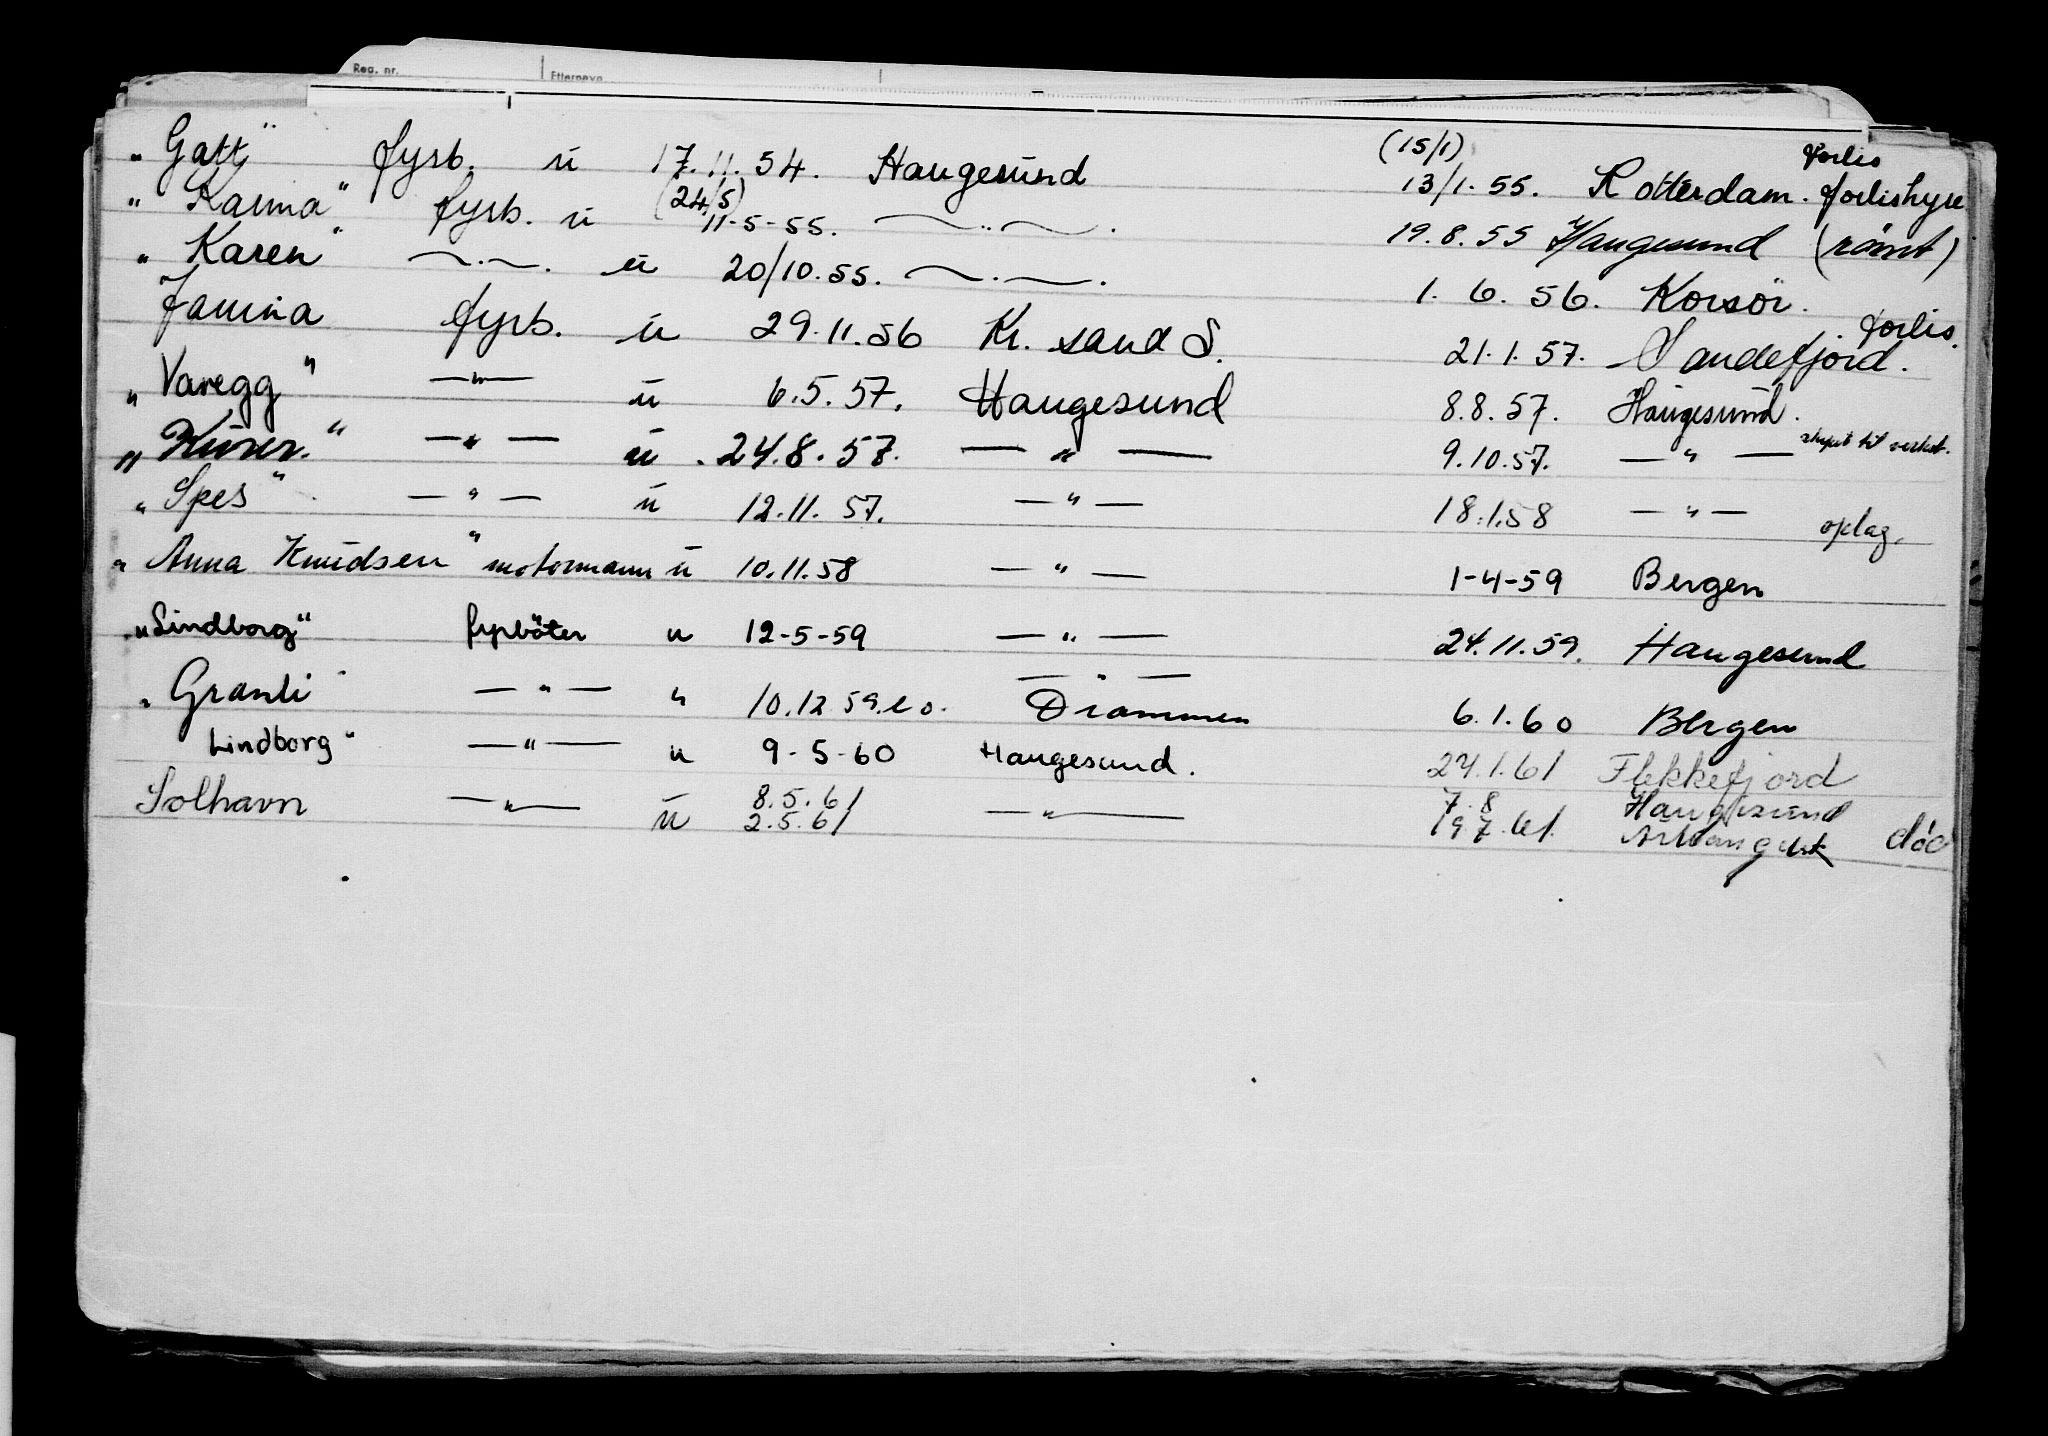 Reg. nr. Etternavn
„Gatt" fyrb. u 17.11.54. Haugesund (15/1) 13/1.55. Rotterdam. forlis forlishyre
„Karma" fyrb. u (24/5) 11-5-55. —„—. 19.8.55 Haugesund (römt)
„Karen" —„—. u 20/10.55. —„—. 1.6.56. Korsör.
Janina fyrb. u 29.11.56 Kr. sand S. 21.1.57. Sandefjord. forlis.
„Varegg" —„— u 6.5.57. Haugesund 8.8.57. Haugesund.
—„— u. 24.8.57. —„— 9.10.57. —„— til
„Spes" —„— u 12.11.57. —„— 18.1.58 —„— oplag.
„Anna Knudsen" motormann u 10.11.58 —„— 1-4-59 Bergen
„Lindborg" fyrböter u 12-5-59 —„— 24.11.59. Haugesund
„Granli" —„— " 10.12 59. —„— Drammen 6.1.60 Bergen
Lindborg" —„— u 9-5-60 Haugesund. 24.1.61 Flekkefjord
Solhavn —„— u 8.5.61 —„— 7.8 Haugesund
2.5.61 19.7.61. Arkangelsk död